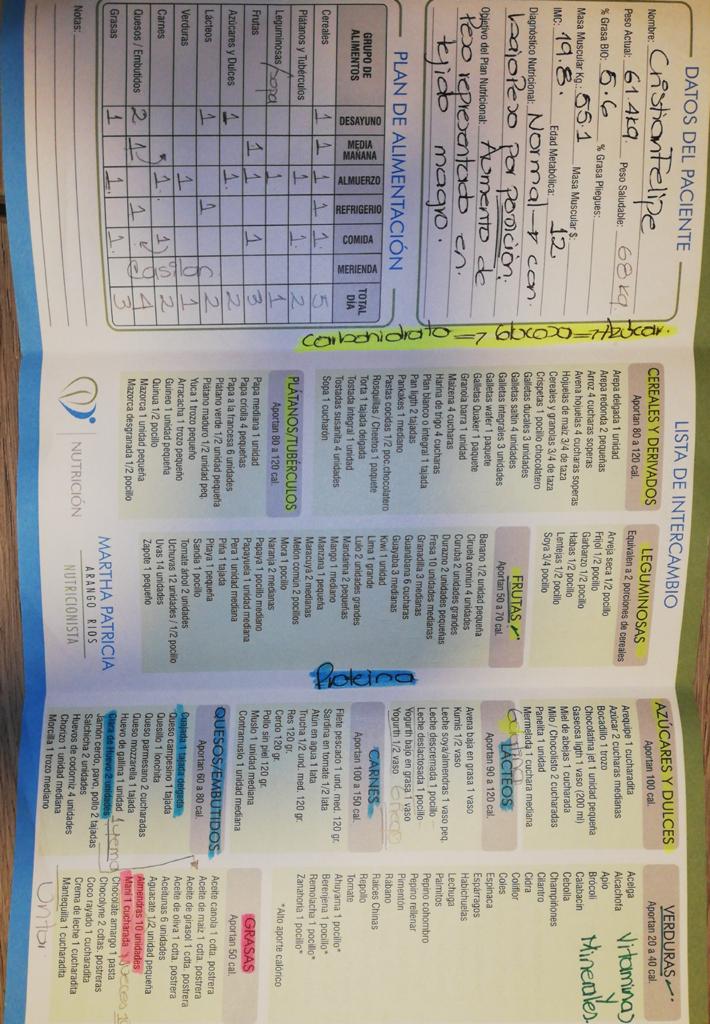 DATOS DEL PACIENTE
Nombre: Cristian Felipe
Peso Actual: 61.4kg Peso Saludable: 68kg
% Grasa BIO: 5.6 % Grasa Pliegues:
Masa Muscular Kg: 55.1 Masa Muscular $:
IMC: 19.8. Edad Metabólica: 12
Diagnóstico Nutricional: Normal - con
bajo peso por posición.
Objetivo del Plan Nutricional: Aumento de
Peso representado en
tejido magro.
PLAN DE ALIMENTACIÓN
GRUPO DE ALIMENTOS DESAYUNO MEDIA MAÑANA ALMUERZO REFRIGERIO COMIDA MERIENDA TOTAL DÍA
Cereales 1 1 1 1 1 5
Plátanos y Tubérculos 1 1 2
Leguminosas /sopa 1 1
Frutas 1 1 1 3
Azúcares y Dulces 1 1 2
Lácteos 1 1 2
Verduras 1 1 2
Carnes 1 1 2
Quesos / Embutidos 2 1 1 4
Grasas 1 1 1 3
Notas:
carbohidrato => Glucosa => Azúcar.
LISTA DE INTERCAMBIO
CEREALES Y DERIVADOS
Aportan 80 a 120 cal.
Arepa delgada 1 unidad
Arepa redonda 2 pequeñas
Arroz 4 cucharas soperas
Avena hojuelas 4 cucharas soperas
Hojuelas de maíz 3/4 de taza
Cereales y granolas 3/4 de taza
Crispetas 1 pocillo chocolatero
Galletas ducales 3 unidades
Galletas saltín 4 unidades
Galletas integrales 3 unidades
Galletas wafer 1 paquete
Galletas Quaker 1 paquete
Granola barra 1 unidad
Maizena 4 cucharas
Harina de trigo 4 cucharas
Pan blanco o integral 1 tajada
Pan light 2 tajadas
Pankakes 1 mediano
Pastas cocidas 1/2 poc chocolatero
Rosquillas / Cheetos 1 paquete
Torta 1 tajada delgada
Tostada integral 1 unidad
Tostadas susanita 4 unidades
Sopa 1 cucharón
PLÁTANOS/TUBÉRCULOS
Aportan 80 a 120 cal.
Papa mediana 1 unidad
Papa criolla 4 pequeñas
Papa a la francesa 6 unidades
Plátano verde 1/2 unidad pequeña
Plátano maduro 1/2 unidad peq.
Yuca 1 trozo pequeño
Arracacha 1 trozo pequeño
Guineo 1 unidad pequeña
Quinua 1/2 pocillo
Mazorca 1 unidad pequeña
Mazorca desgranada 1/2 pocillo
NUTRICIÓN
LEGUMINOSAS
Equivalen a 2 porciones de cereales
Arveja seca 1/2 pocillo
Fríjol 1/2 pocillo
Garbanzo 1/2 pocillo
Habas 1/2 pocillo
Lentejas 1/2 pocillo
Soya 3/4 pocillo
FRUTAS
Aportan 50 a 70 cal.
Banano 1/2 unidad pequeña
Ciruela común 4 unidades
Curuba 2 unidades grandes
Durazno 2 unidades pequeñas
Fresa 10 unidades medianas
Granadilla 3 medianas
Guanábana 6 cucharas
Guayaba 3 medianas
Kiwi 1 unidad
Lima 1 grande
Lulo 2 unidades grandes
Mandarina 2 pequeñas
Mango 1 mediano
Manzana 1 pequeña
Maracuyá 2 medianas
Melón común 2 pocillos
Mora 1 pocillo
Naranja 2 medianas
Papaya 1 pocillo mediano
Papayuela 1 unidad mediana
Pera 1 unidad mediana
Piña 1 tajada
Pitaya 1 pequeña
Sandía 1 pocillo
Tomate árbol 2 unidades
Uchuvas 12 unidades / 1/2 pocillo
Uvas 14 unidades
Zapote 1 pequeño
MARTHA PATRICIA
ARANGO RIOS
NUTRICIONISTA
Proteína
AZÚCARES Y DULCES
Aportan 100 cal.
Arequipe 1 cucharadita
Azúcar 2 cucharas medianas
Bocadillo 1 trozo
Chocolatina jet 1 unidad pequeña
Gaseosa light 1 vaso (200 ml)
Miel de abejas 1 cucharada
Milo / Chocolisto 2 cucharadas
Panelita 1 unidad
Mermelada 1 cuchara mediana
LÁCTEOS
Aportan 90 a 120 cal.
Avena baja en grasa 1 vaso
Kumis 1/2 vaso
Leche soya/almendras 1 vaso peq.
Leche descremada 1 pocillo
Leche deslactosada 1 pocillo
Yogurth bajo en grasa 1 vaso
Yogurth 1/2 vaso
CARNES
Aportan 100 a 150 cal.
Filete pescado 1 und. med. 120 gr.
Sardina en tomate 1/2 lata
Atún en agua 1 lata
Trucha 1/2 und. med. 120 gr.
Res 120 gr.
Cerdo 120 gr.
Pollo sin piel 120 gr.
Muslo 1 unidad mediana
Contramuslo 1 unidad mediana
QUESOS/EMBUTIDOS
Aportan 60 a 80 cal.
Cuajada 1 tajada delgada
Queso campesino 1 tajada
Quesillo 1 lonchita
Queso parmesano 2 cucharadas
Queso mozzarella 1 tajada
Huevo de gallina 1 unidad
Clara de huevo 2 unidades 1 yema
Jamón cerdo, pavo, pollo 2 tajadas
Salchicha 2 unidades
Huevos de codorniz 4 unidades
Chorizo 1 unidad mediana
Morcilla 1 trozo mediano
VERDURAS
Aportan 20 a 40 cal.
Vitaminas
y
Minerales
Acelga
Alcachofa
Apio
Brócoli
Calabacín
Cebolla
Champiñones
Cilantro
Cidra
Coliflor
Coles
Espinaca
Espárragos
Habichuelas
Lechuga
Palmitos
Pepino cohombro
Pepino rellenar
Pimentón
Rábano
Raíces Chinas
Repollo
Tomate
Ahuyama 1 pocillo*
Berenjena 1 pocillo*
Remolacha 1 pocillo*
Zanahoria 1 pocillo*
*Alto aporte calórico
GRASAS
Aportan 50 cal.
Aceite canola 1 cdta. postrera
Aceite de maíz 1 cdta. postrera
Aceite de girasol 1 cdta. postrera
Aceite de oliva 1 cdta. postrera
Aceitunas 6 unidades
Aguacate 1/2 unidad pequeña
Almendras 10 unidades
Maní 1 cucharada
Chocolate amargo 1 pasta
Chocolyne 2 cdtas. postreras
Coco rayado 1 cucharadita
Crema de leche 1 cucharadita
Mantequilla 1 cucharadita
Untar